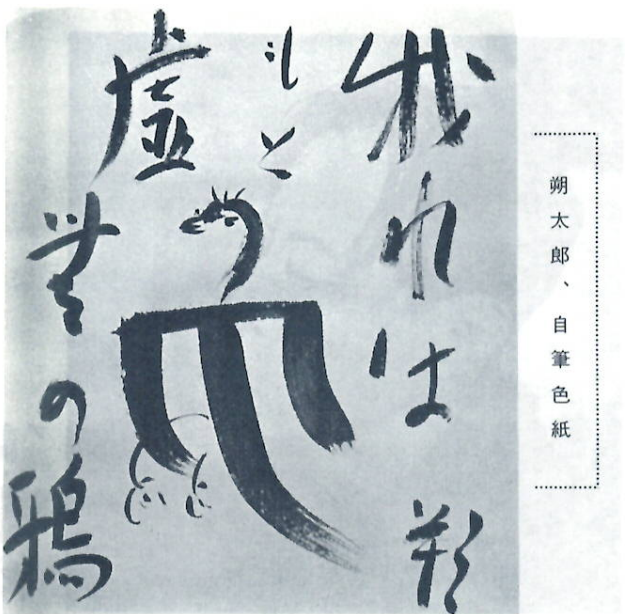 朔太郎、自筆色紙
我れは
朔
もと
虚
無の鴉